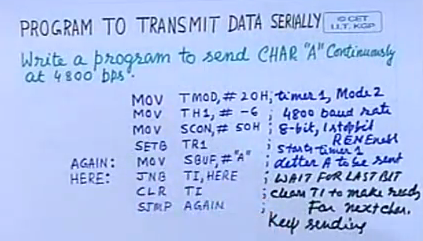 PROGRAM TO TRANSMIT DATA SERIALLY
© CET
I.I.T. KGP
Write a program to send CHAR "A" Continuously
at 4800 bps.
MOV TMOD, # 20H ; timer 1, Mode 2
MOV TH1, # -6 ; 4800 baud rate
MOV SCON, # 50H ; 8-bit, 1 stopbit
RENEnabl
SETB TR1 ; starts timer 1
AGAIN: MOV SBUF, # "A" ; letter A to be sent
HERE: JNB TI, HERE ; WAIT FOR LAST BIT
CLR TI ; clears TI to make ready
SJMP AGAIN ; For next char.
Keep sending